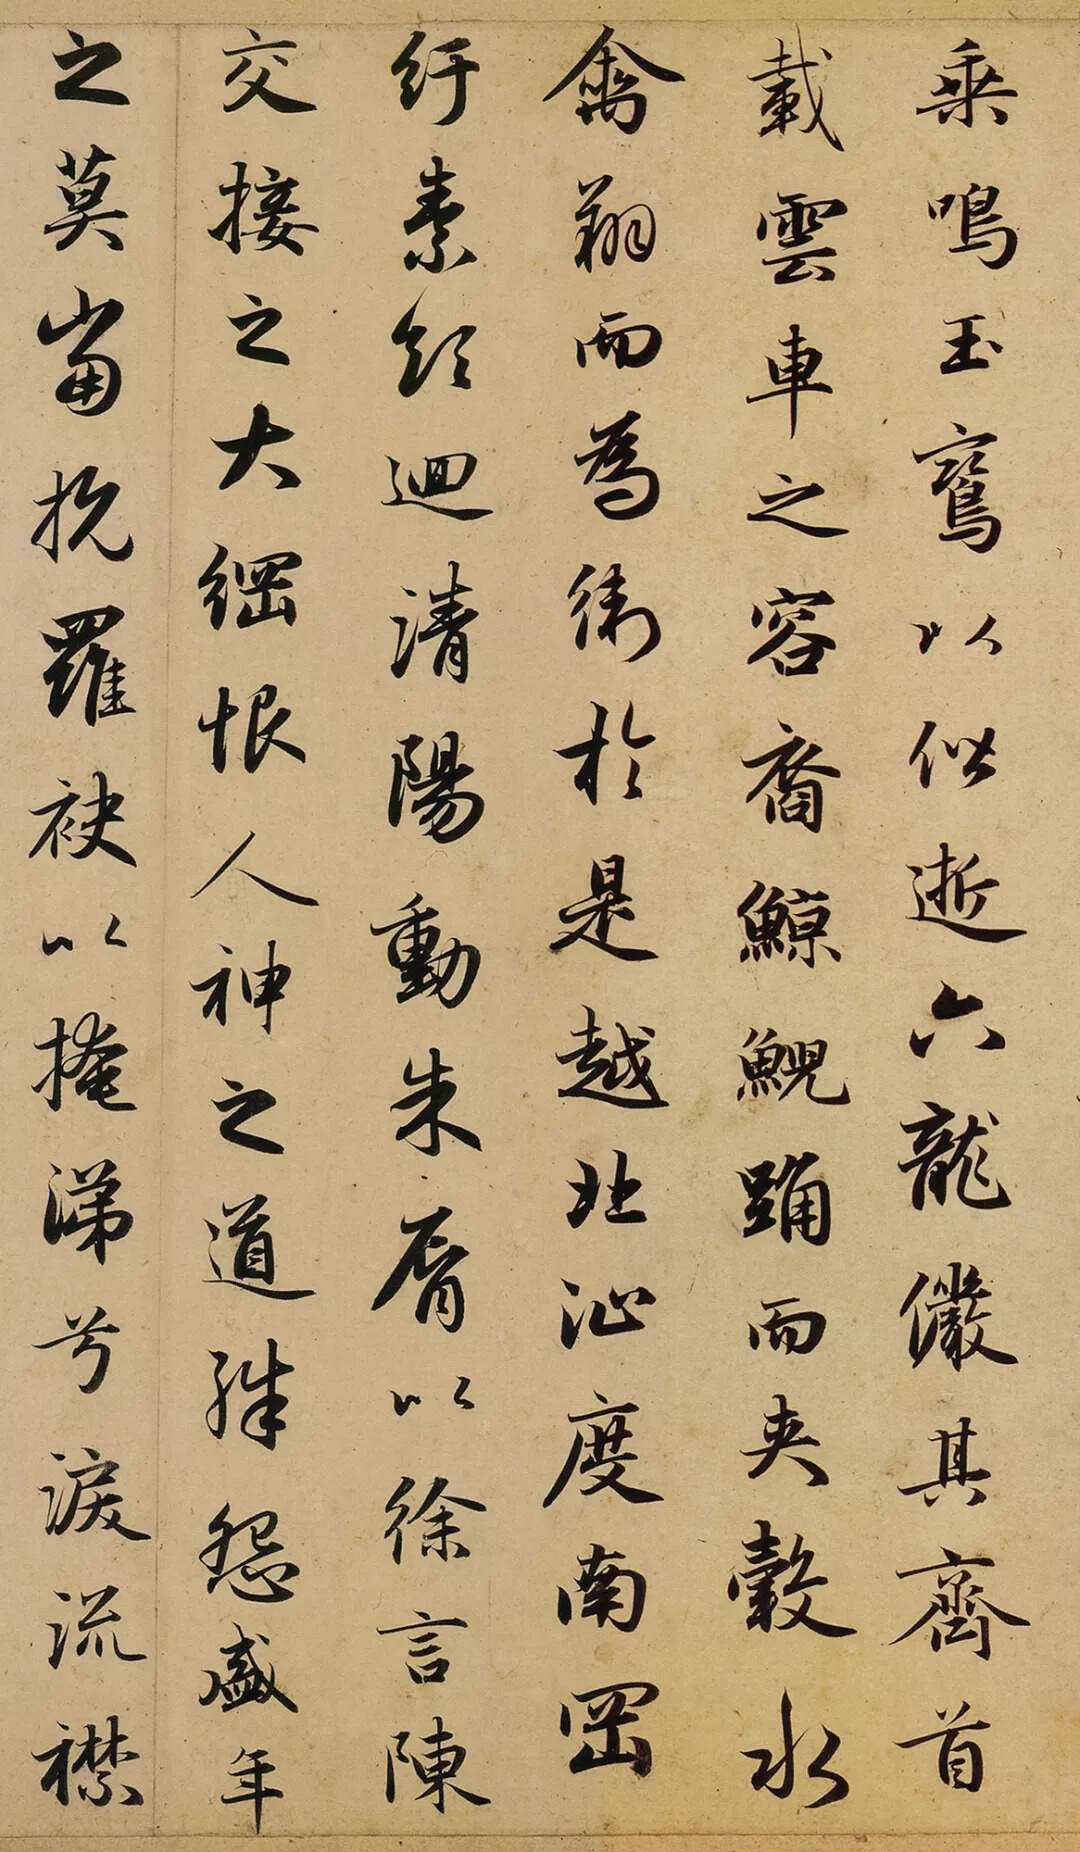 乗鳴玉鸞以偕逝六龍儼其齊首
載雲車之容裔鯨鯢踊而夾轂水
禽翔而為衛於是越北沚度南岡
紆素領迴清陽動朱脣以徐言陳
交接之大綱恨人神之道殊怨盛年
之莫當抗羅袂以掩涕兮淚流襟